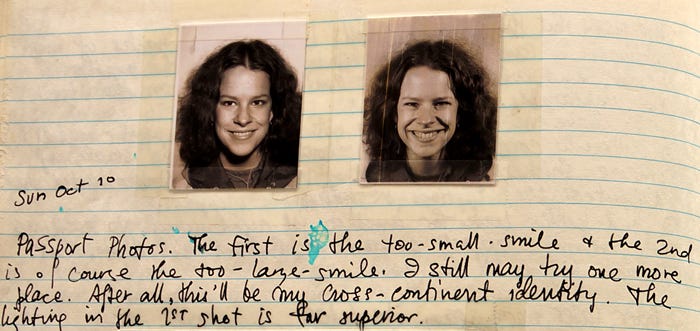 Sun Oct 10
Passport Photos. The first is the too-small-smile & the 2nd
is of course the too-large-smile. I still may try one more
place. After all, this'll be my cross-continent identity. The
lighting in the 1ST shot is far superior.